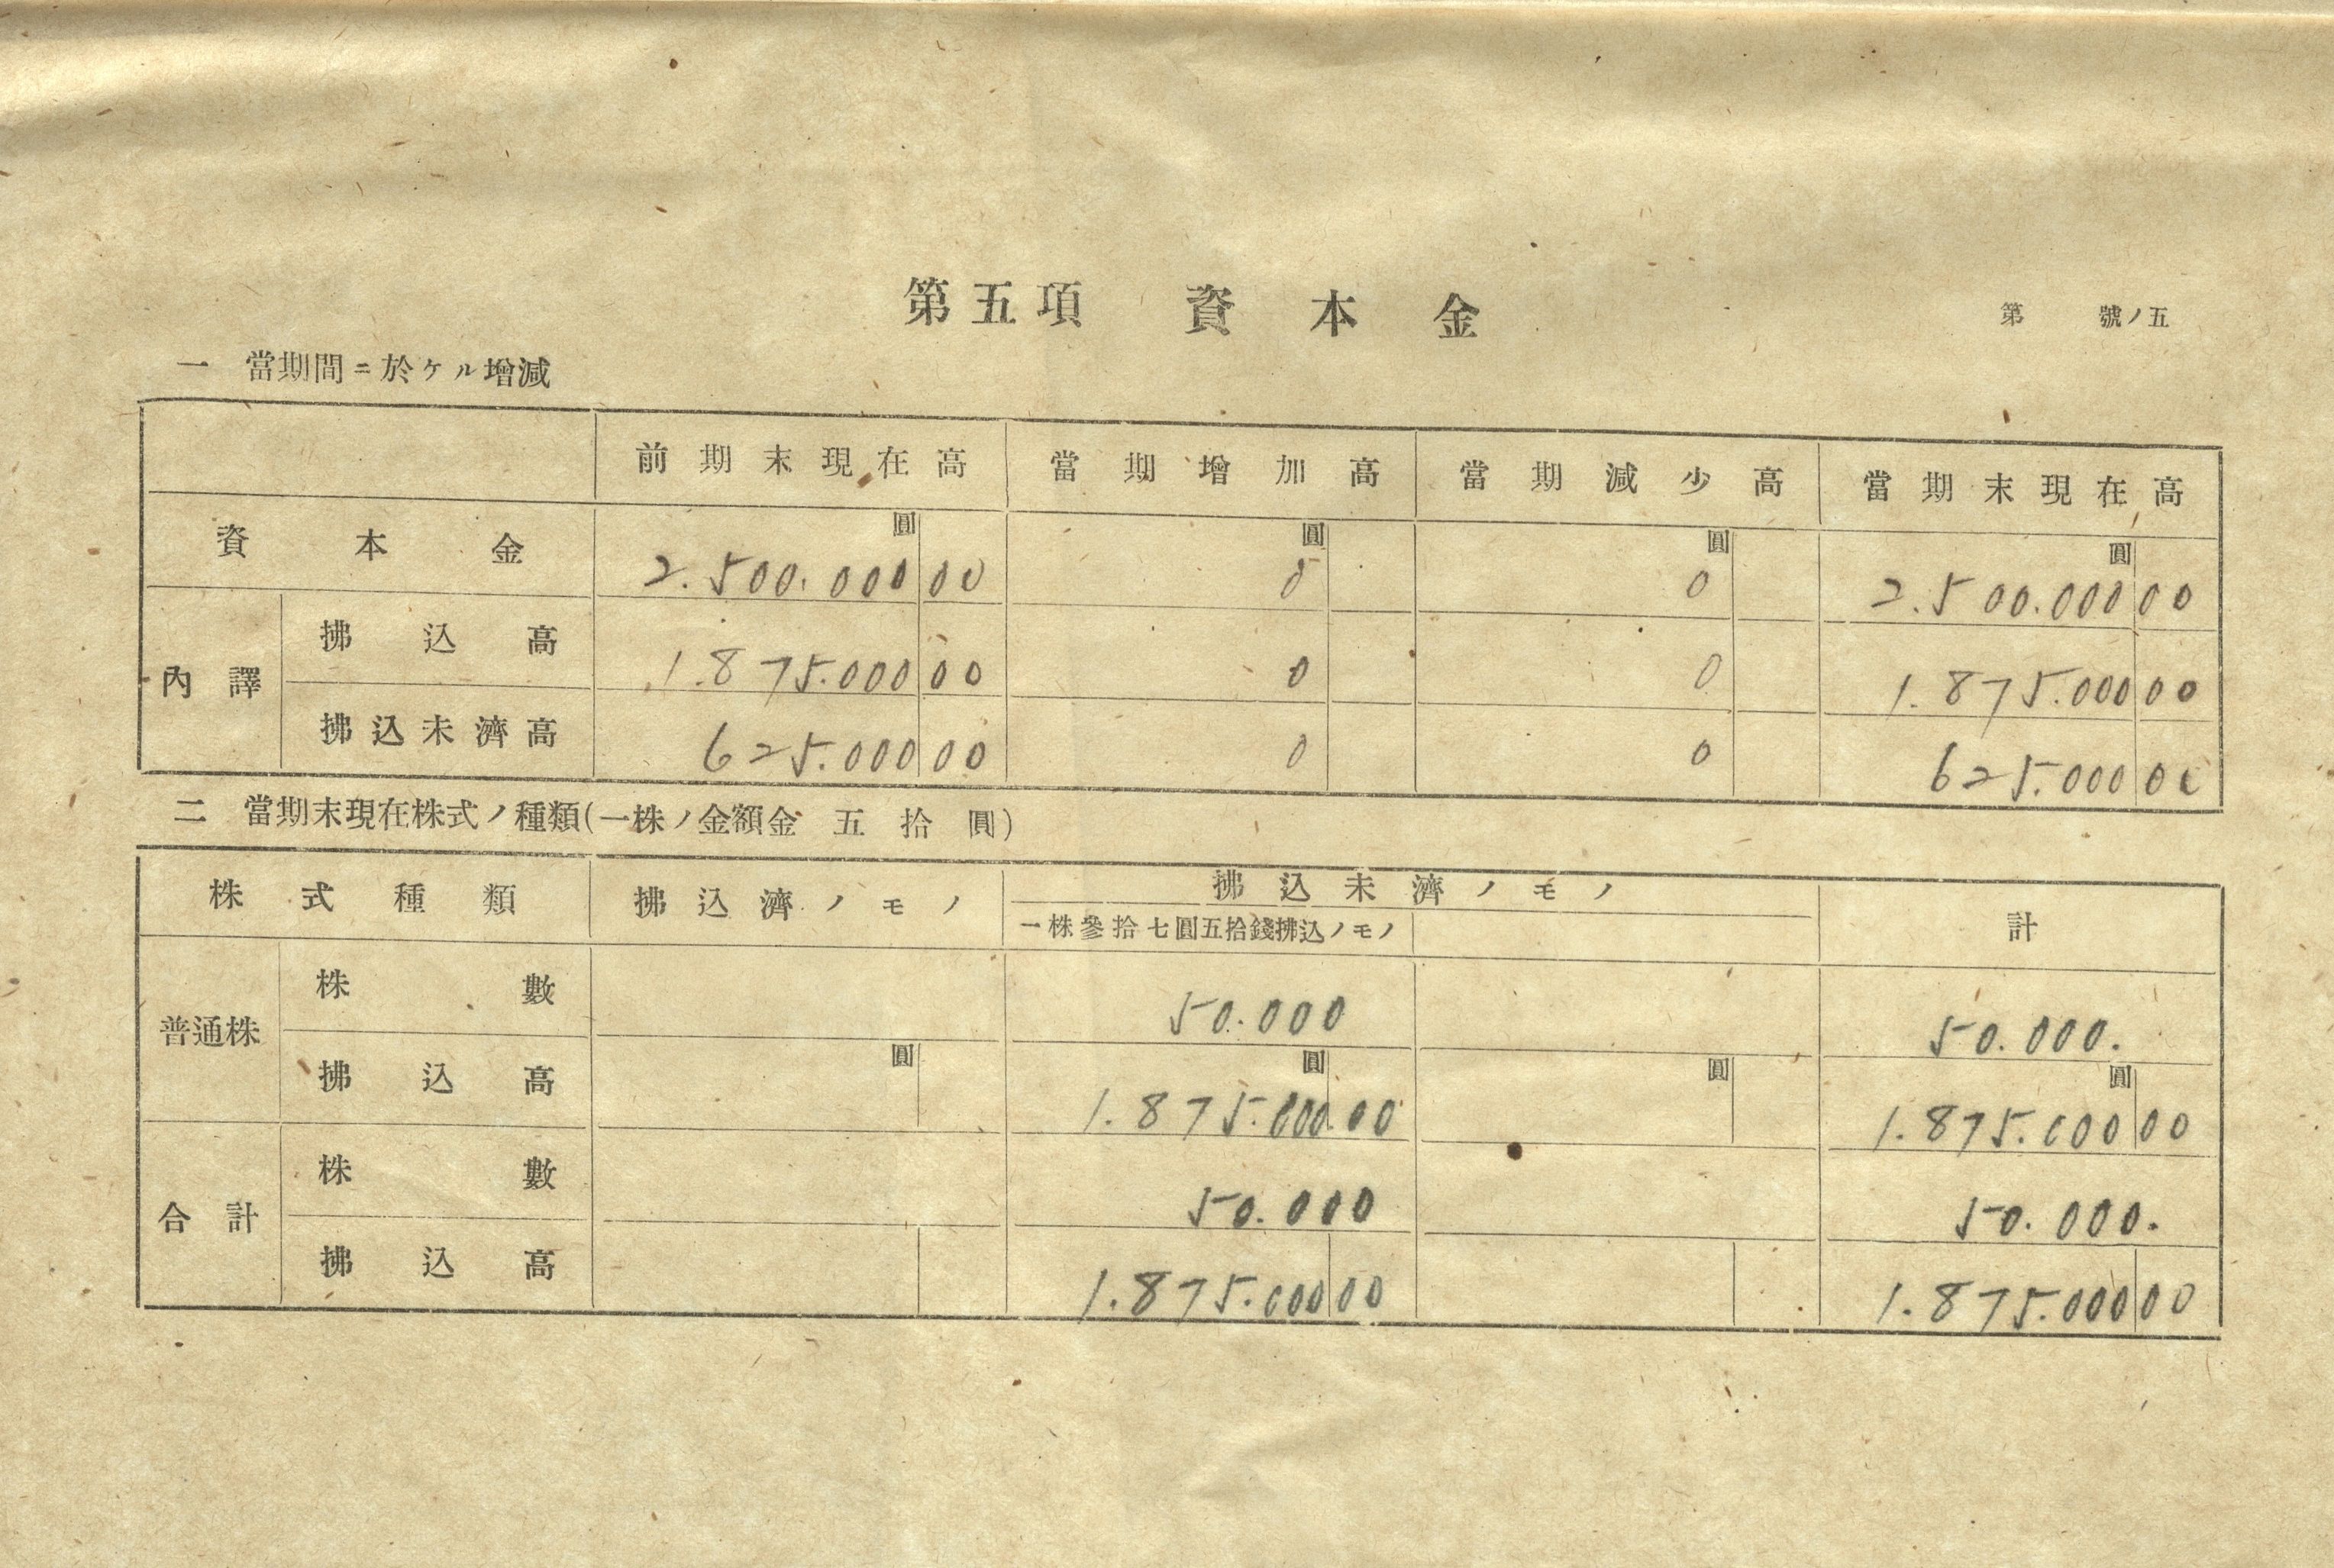 第五項 資本金
第 號ノ五
一 當期間ニ於ケル增減
前期末現在高 當期增加高 當期減少高 當期末現在高
資本金 圓 2.500.000 00 圓 0 圓 0 圓 2.500.000 00
內譯
拂込高 1.875.000 00 0 0 1.875.000 00
拂込未濟高 625.000 00 0 0 625.000 00
二 當期末現在株式ノ種類(一株ノ金額金 五拾圓)
株式種類 拂込濟ノモノ 拂込未濟ノモノ 計
一株參拾七圓五拾錢拂込ノモノ
普通株
株數 50.000 50.000.
拂込高 圓 圓 1.875.000.00 圓 圓 1.875.000 00
合計
株數 50.000 50.000.
拂込高 1.875.000 00 1.875.000 00